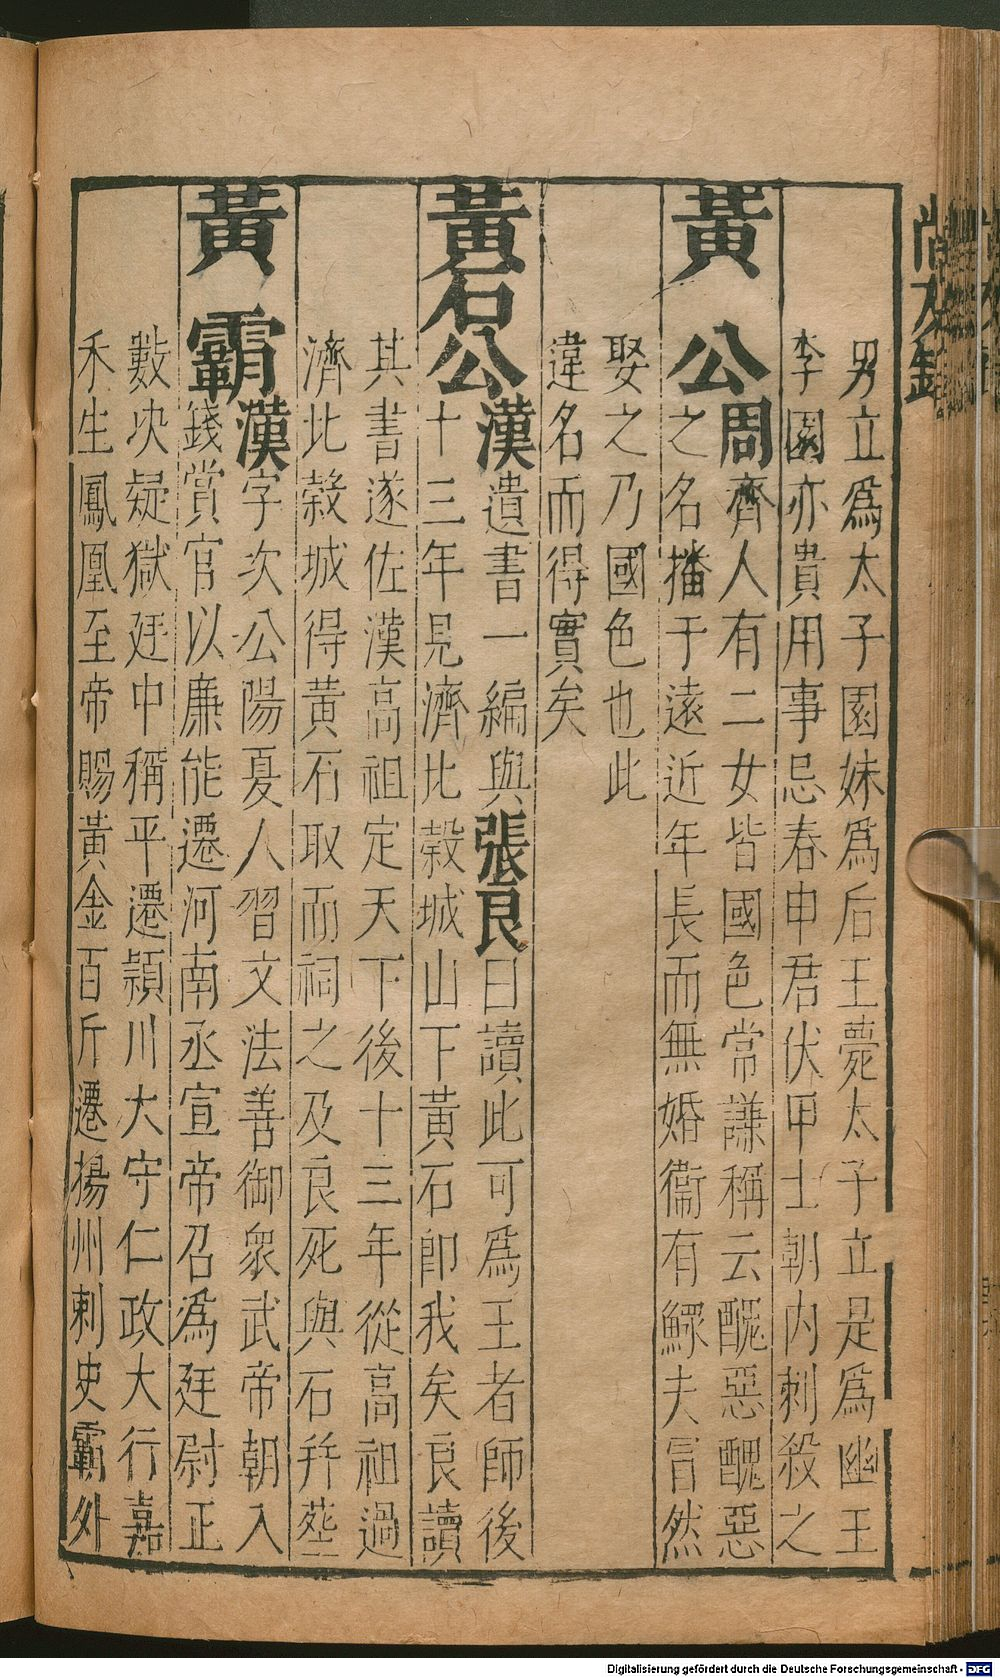 尚友錄
男立爲太子園妹爲后王薨太子立是爲幽王
李園亦貴用事忌春申君伏甲士朝內刺殺之
黃公周齊人有二女皆國色常謙稱云醜惡醜惡
之名播于遠近年長而無婚衞有鰥夫冒然
娶之乃國色也此
違名而得實矣
黃石公漢遺書一編與張良曰讀此可爲王者師後
十三年見濟北穀城山下黃石卽我矣良讀
其書遂佐漢高祖定天下後十三年從高祖過
濟北穀城得黃石取而祠之及良死與石幷葬
黃霸漢字次公陽夏人習文法善御衆武帝朝入
錢賞官以廉能遷河南丞宣帝召爲廷尉正
數决疑獄廷中稱平遷潁川大守仁政大行嘉
禾生鳳凰至帝賜黃金百斤遷揚州刺史霸外
Digitalisierung gefördert durch die Deutsche Forschungsgemeinschaft - DFG